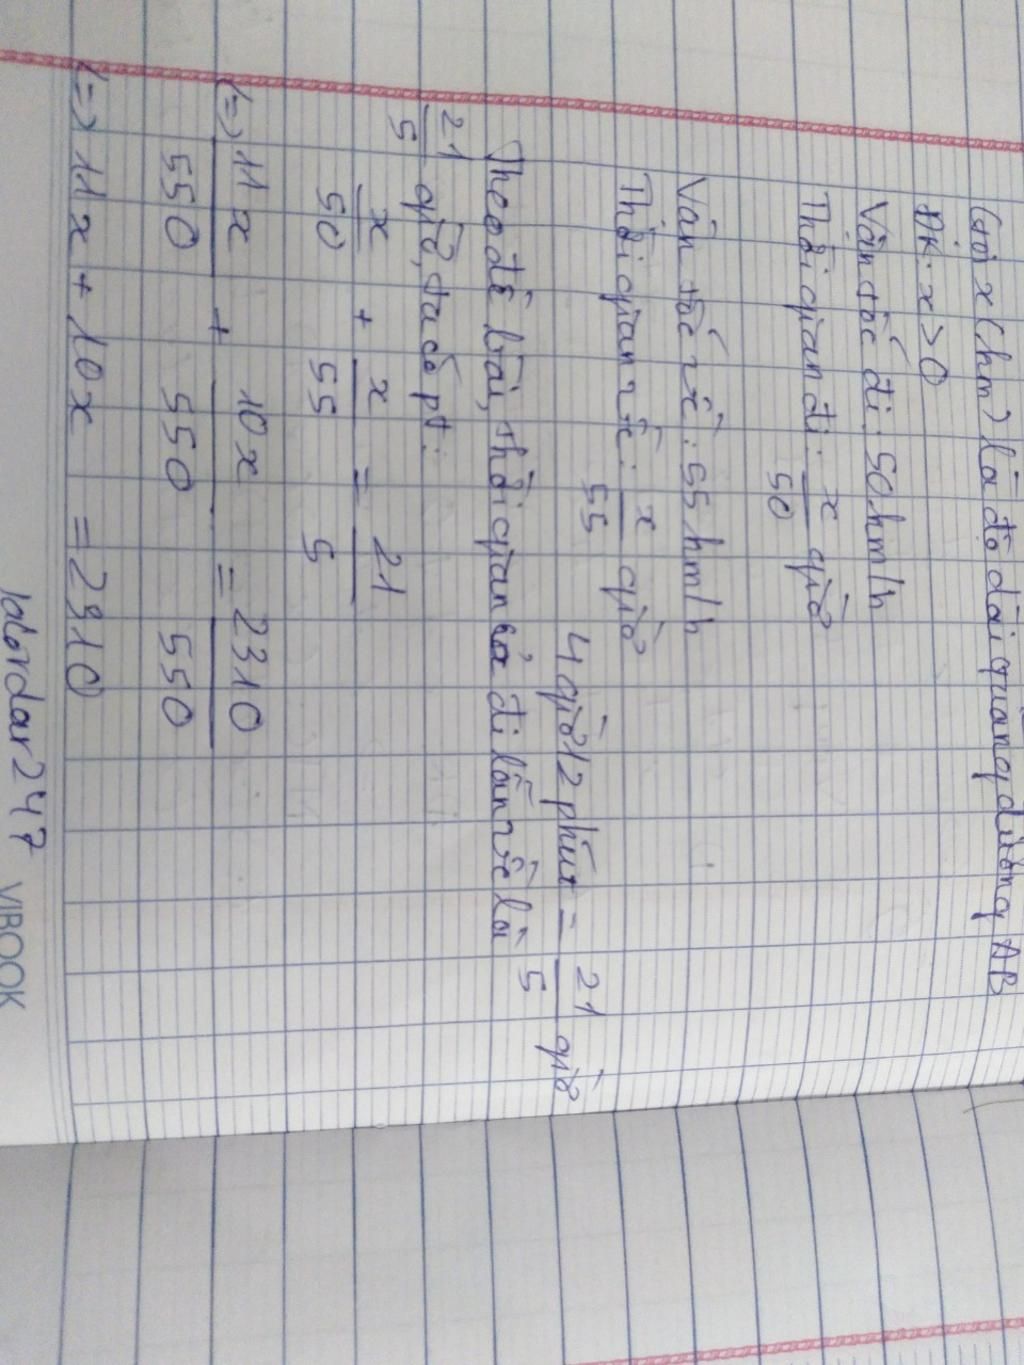 Gọi x (km) là độ dài quãng đường AB
ĐK: x > 0
Vận tốc đi: 50 km/h
Thời gian đi: x/50 giờ
Vận tốc về: 55 km/h
Thời gian về: x/55 giờ
4 giờ 12 phút = 21/5 giờ
Theo đề bài, thời gian cả đi lẫn về là
21/5 giờ, ta có pt:
x/50 + x/55 = 21/5
<=> 11x/550 + 10x/550 = 2310/550
<=> 11x + 10x = 2310
VIBOOK